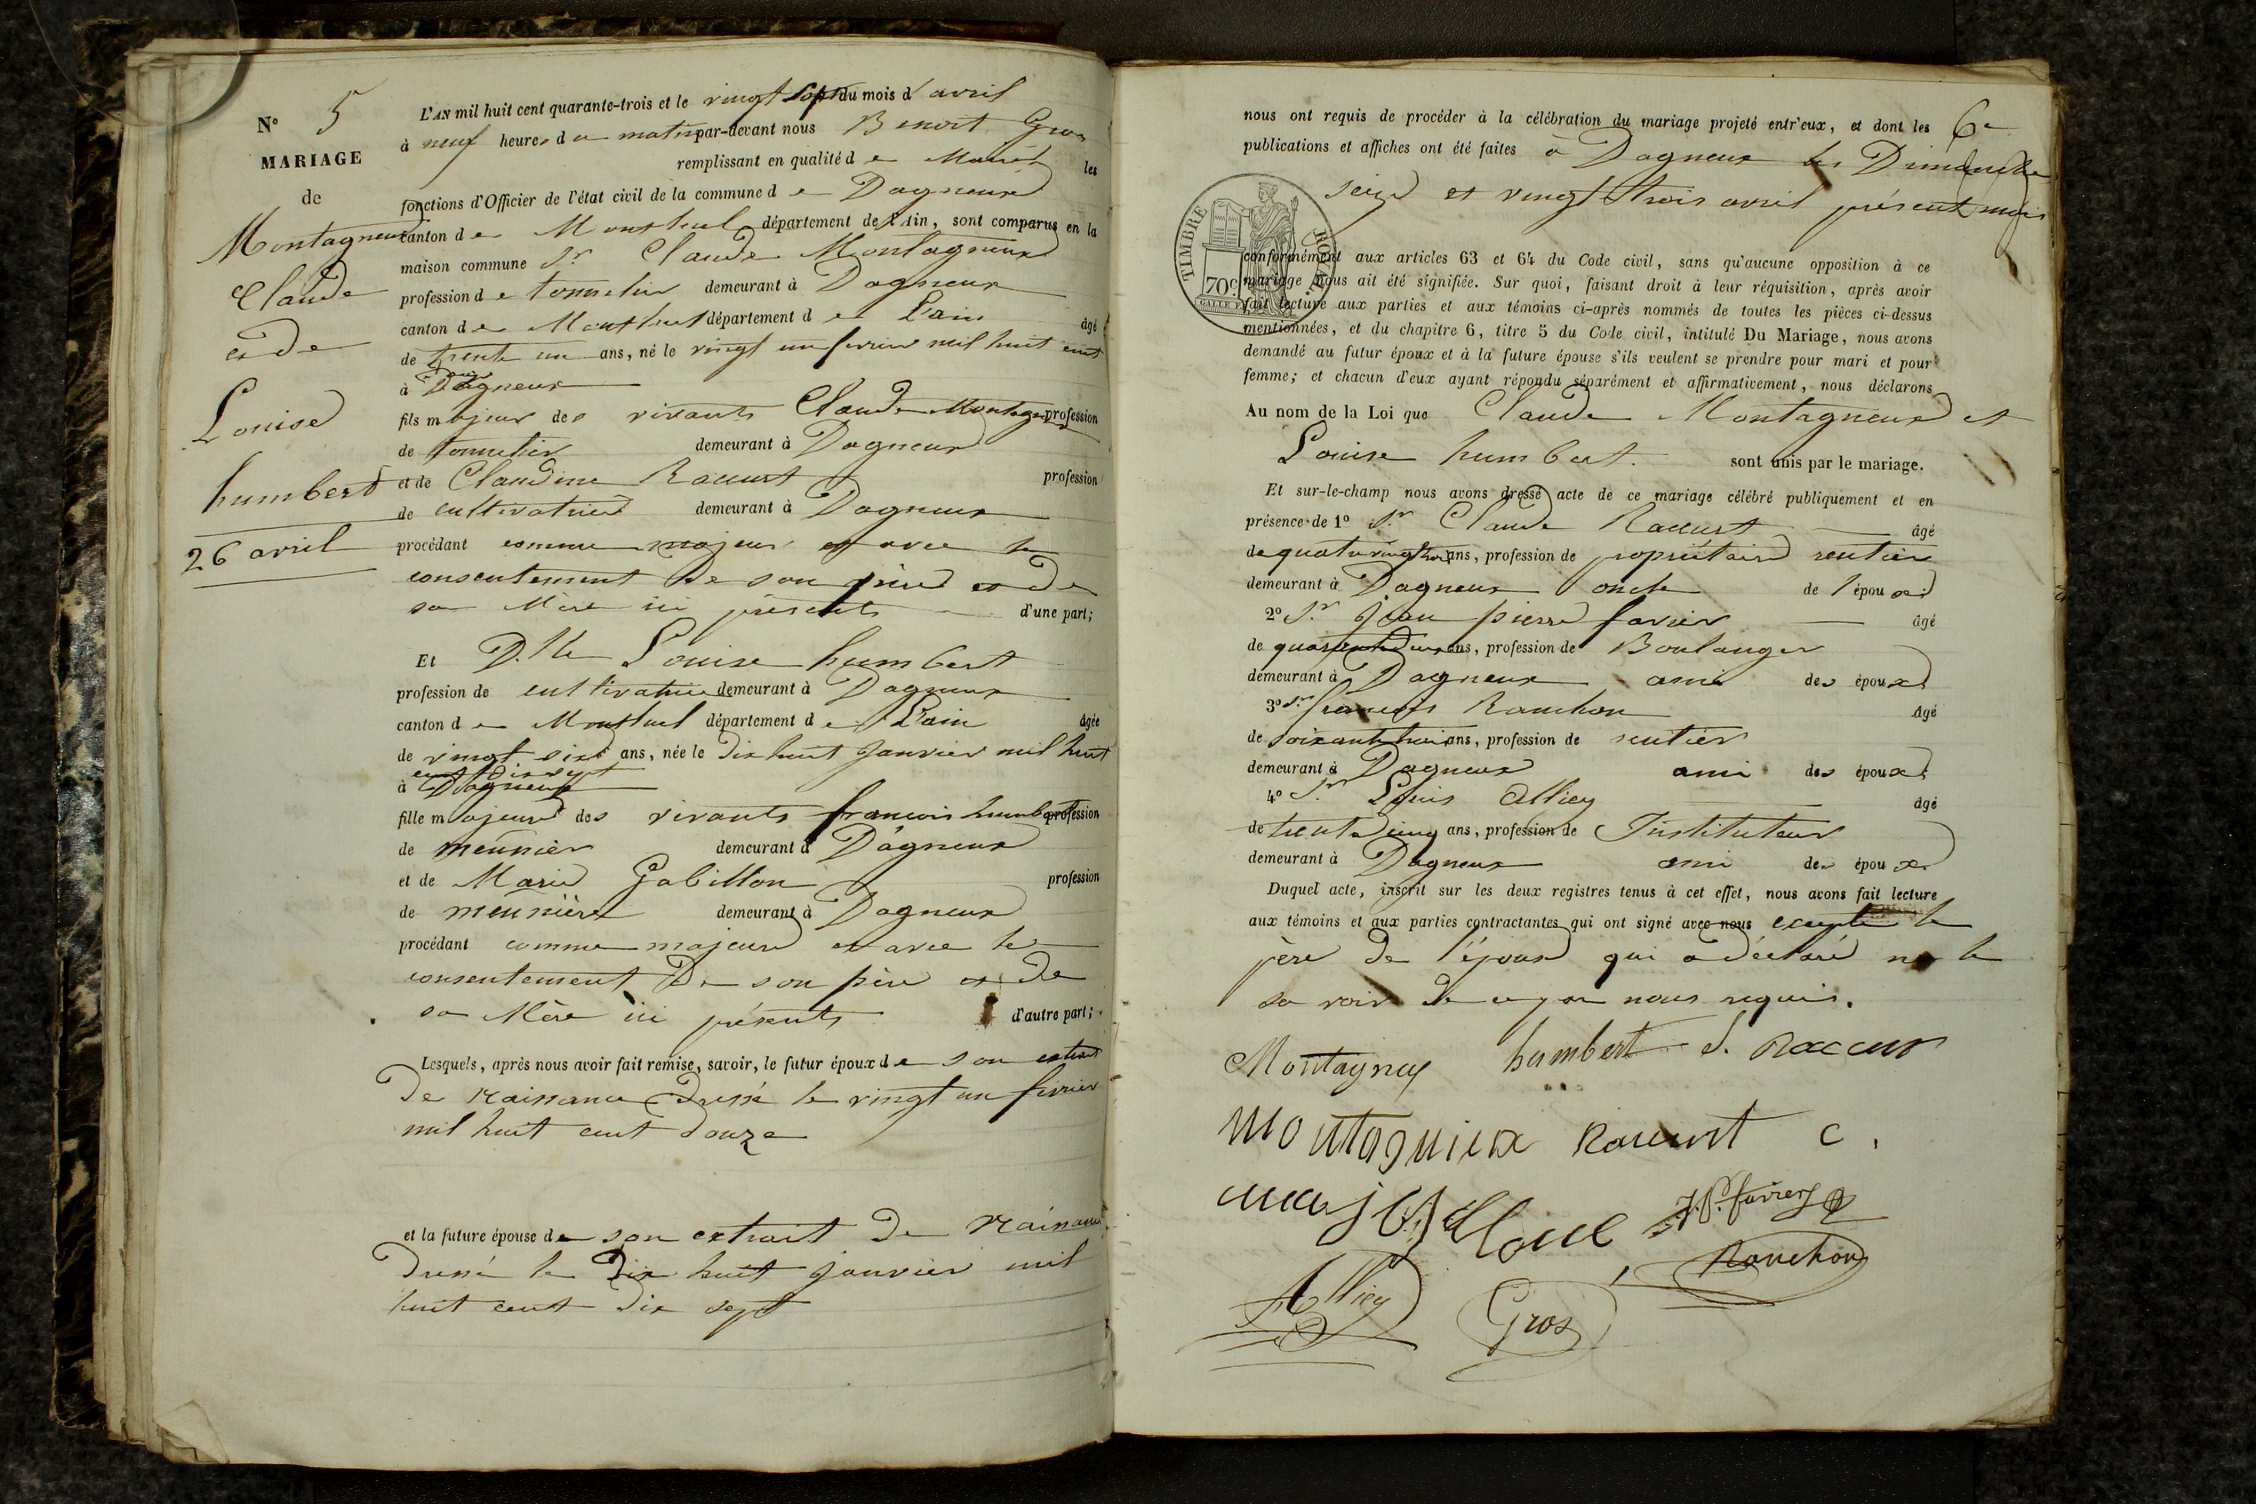 N° 5
MARIAGE
de
Montagneux
Claude
et de
Louise
humbert
26 avril
L'AN mil huit cent quarante-trois et le vingt sept du mois d'avril
à neuf heures du matin par-devant nous Benoit Gros
remplissant en qualité de Maire les
fonctions d'Officier de l'état civil de la commune de Dagneux
canton de Montluel département de l'Ain, sont comparus en la
maison commune Sr Claude Montagneux
profession de tonnelier demeurant à Dagneux
canton de Montluel département de L'ain âgé
de trente un ans, né le vingt un fevrier mil huit cent
douze
à Dagneux
fils majeur des vivants Claude Montagneux profession
de tonnelier demeurant à Dagneux
et de Claudine Racurt profession
de cultivatrice demeurant à Dagneux
procédant comme majeur et avec le
consentement de son père et de
sa Mère ici présents d'une part;
Et D.lle Louise humbert
profession de cultivatrice demeurant à Dagneux
canton de Montluel département de L'ain âgée
de vingt six ans, née le dix huit Janvier mil huit
cent dix sept
à Dagneux
fille majeure des vivants francois humbert profession
de meunier demeurant à Dagneux
et de Marie Gabillon profession
de meunière demeurant à Dagneux
procédant comme majeure et avec le
consentement De son père et de
sa Mère ici présents d'autre part;
Lesquels, après nous avoir fait remise, savoir, le futur époux de son extrait
De naissance Dressé le vingt un fevrier
mil huit cent douze
et la future épouse de son extrait De naissance
Dressé le Dix huit janvier mil
huit cent dix sept
nous ont requis de procéder à la célébration du mariage projeté entr'eux, et dont les
publications et affiches ont été faites à Dagneux les Dimanches
seize et vingt trois avril présent mois
TIMBRE ROYAL
70c
conformément aux articles 63 et 64 du Code civil, sans qu'aucune opposition à ce
mariage nous ait été signifiée. Sur quoi, faisant droit à leur réquisition, après avoir
fait lecture aux parties et aux témoins ci-après nommés de toutes les pièces ci-dessus
mentionnées, et du chapitre 6, titre 5 du Code civil, intitulé Du Mariage, nous avons
demandé au futur époux et à la future épouse s'ils veulent se prendre pour mari et pour
femme; et chacun d'eux ayant répondu séparément et affirmativement, nous déclarons
Au nom de la Loi que Claude Montagneux et
Louise humbert sont unis par le mariage.
Et sur-le-champ nous avons dressé acte de ce mariage célébré publiquement et en
présence de 1° Sr Claude Racurt âgé
de ans, profession de propriétaire rentier
demeurant à Dagneux oncle de l'époux
2° Sr Jean pierre favier âgé
de ans, profession de Boulanger
demeurant à Dagneux ami des époux
3° Sr francois Rouchon âgé
de ans, profession de rentier
demeurant à Dagneux ami des époux
4° Sr Louis Alliey âgé
de trente cinq ans, profession de Instituteur
demeurant à Dagneux ami des époux
Duquel acte, inscrit sur les deux registres tenus à cet effet, nous avons fait lecture
aux témoins et aux parties contractantes qui ont signé avec nous excepté le
père de l'époux qui a déclaré ne le
savoir de ce par nous requis.
Montagneux humbert Raccur
Montagnieux Racurt C.
J.P. favier
Rouchon
Alliey Gros